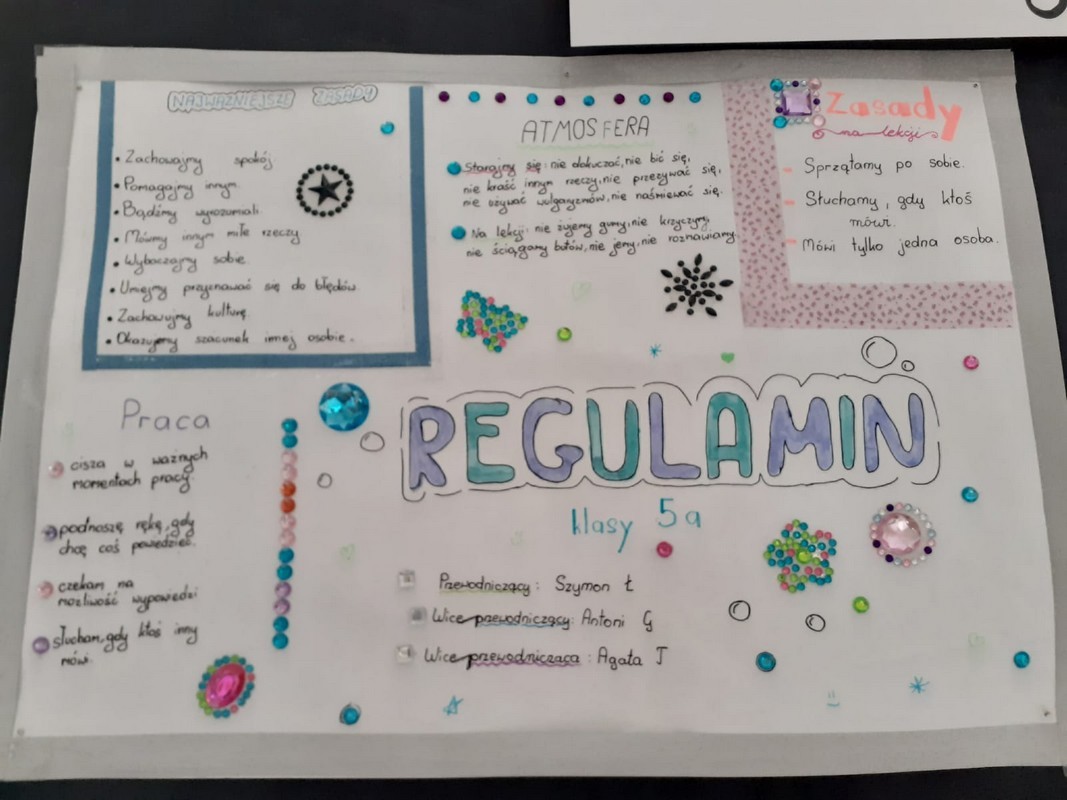 NAJWAŻNIEJSZE ZASADY
• Zachowajmy spokój
• Pomagajmy innym
• Bądźmy wyrozumiali.
• Mówmy innym miłe rzeczy
• Wybaczajmy sobie
• Umiejmy przyznawać się do błędów
• Zachowujmy kulturę
• Okazujemy szacunek innej osobie.
ATMOSFERA
Starajmy się: nie dokuczać, nie bić się,
nie kraść innym rzeczy, nie przezywać się,
nie używać wulgaryzmów, nie naśmiewać się.
Na lekcji: nie żujemy gumy, nie krzyczymy,
nie ściągamy butów, nie jemy, nie rozmawiamy.
Zasady
na lekcji
- Sprzątamy po sobie.
- Słuchamy, gdy ktoś
mówi.
- Mówi tylko jedna osoba.
Praca
cisza w ważnych
momentach pracy.
podnoszę rękę, gdy
chcę coś powiedzieć.
czekam na
możliwość wypowiedzi
słucham, gdy ktoś inny
mówi.
REGULAMIN
klasy 5a
Przewodniczący: Szymon Ł
Wice przewodniczący: Antoni G
Wice przewodnicząca: Agata J